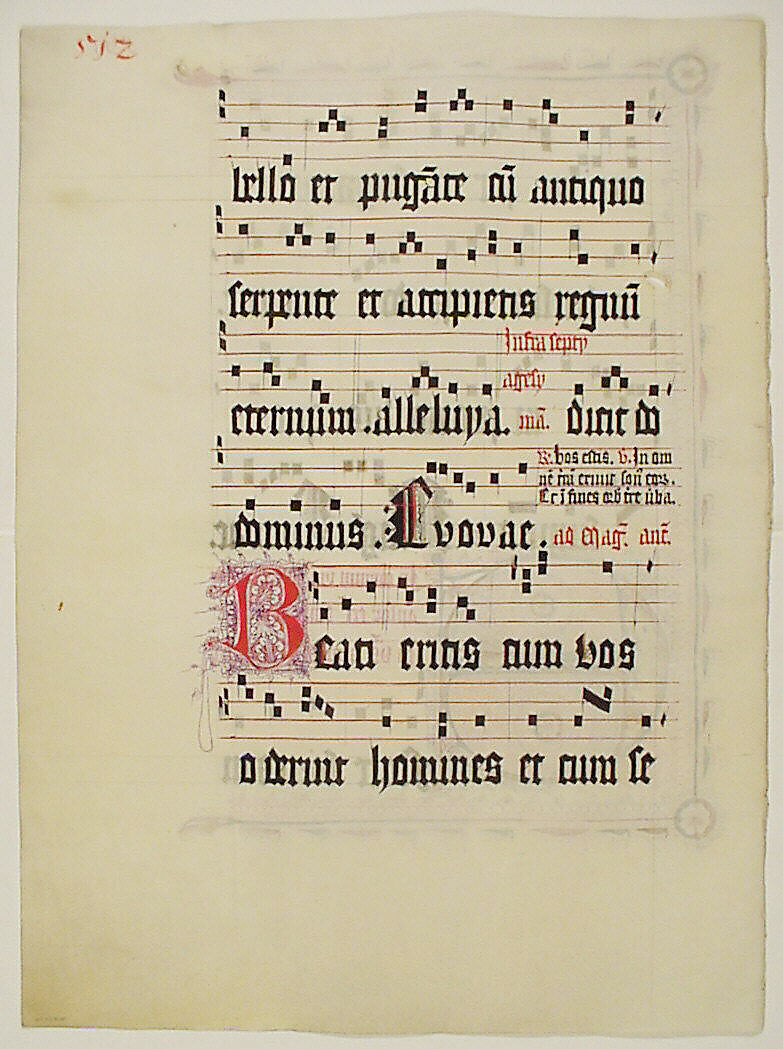 512
bello et pugāte cū antiquo
serpente et accipietis regnū
Infra septu
agesy
eternum . alleluya . mā. dicit do
R. Vos estis. V. In om
nē trā exiuit son⁹ eorꝝ.
Et ī fines orb̄ tre v̄ba.
dominus . Evovae . ad Mag̅. ant̄.
Beati eritis cum vos
oderint homines et cum se